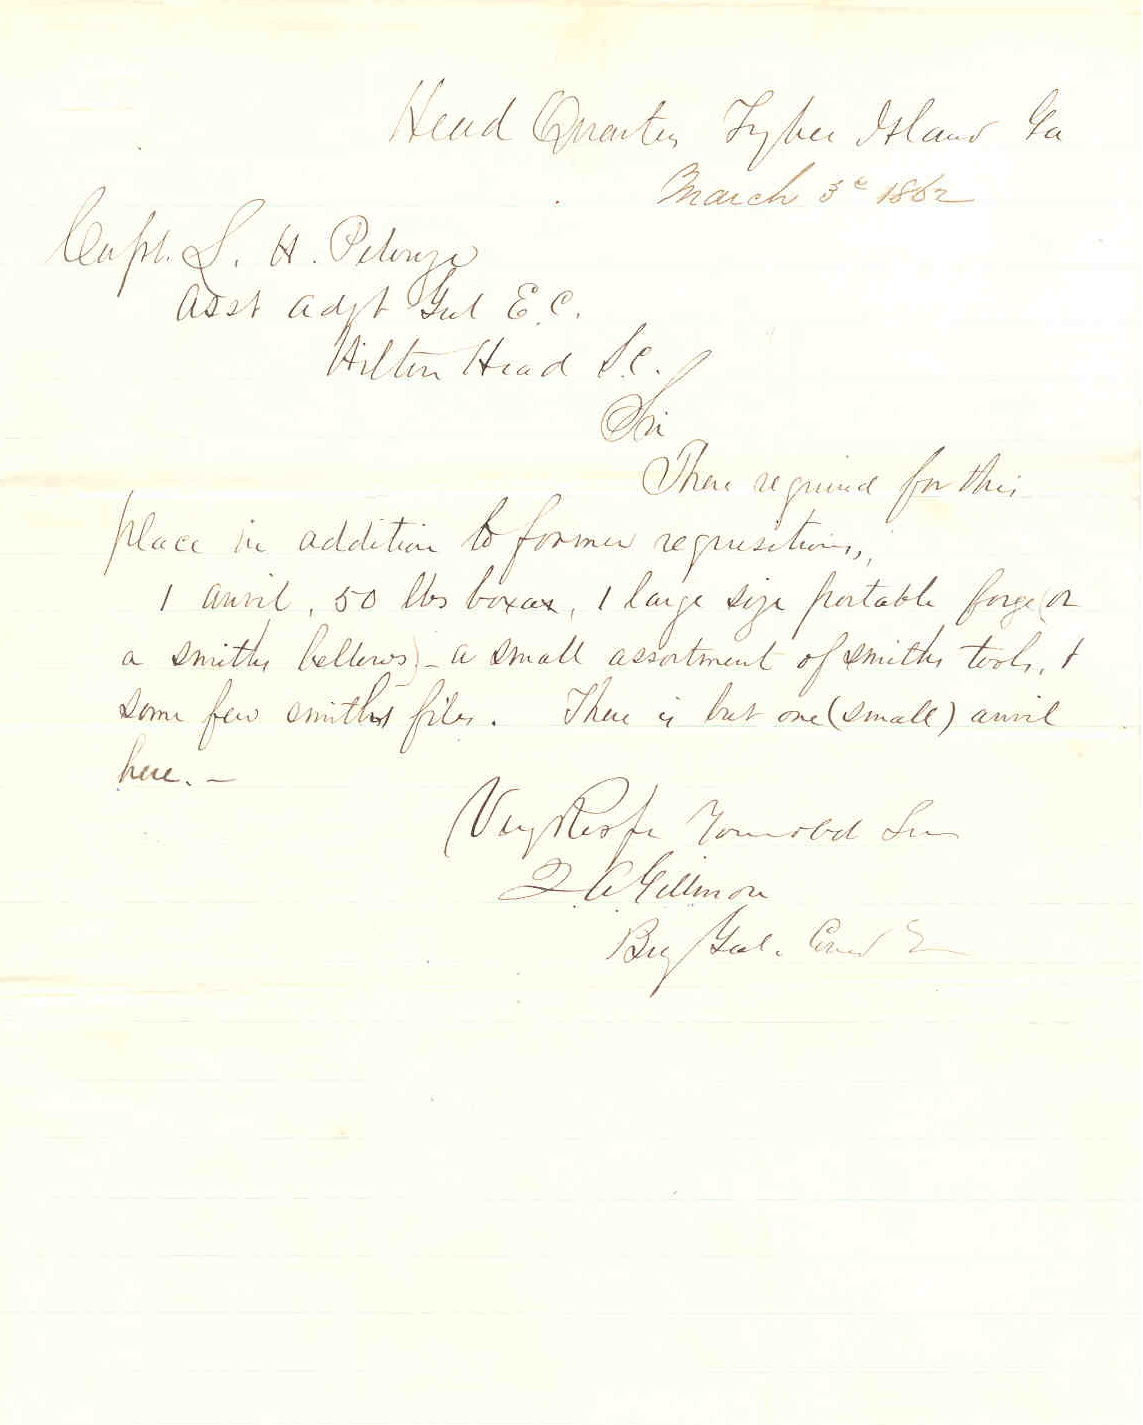 Head Quarters Tybee Island Ga
March 3d 1862
Capt. L. H. Pelouze
Asst Adjt Genl E. C.
Hilton Head S.C.
Sir
There required for this
place in addition to former requisitions,
1 anvil, 50 lbs borax, 1 large size portable forge (or
a smiths bellows) - a small assortment of smiths tools, &
some few smiths files. There is but one (small) anvil
here. -
Very Respy Your obd Sev
Q A Gillmore
Brig Genl. Comd